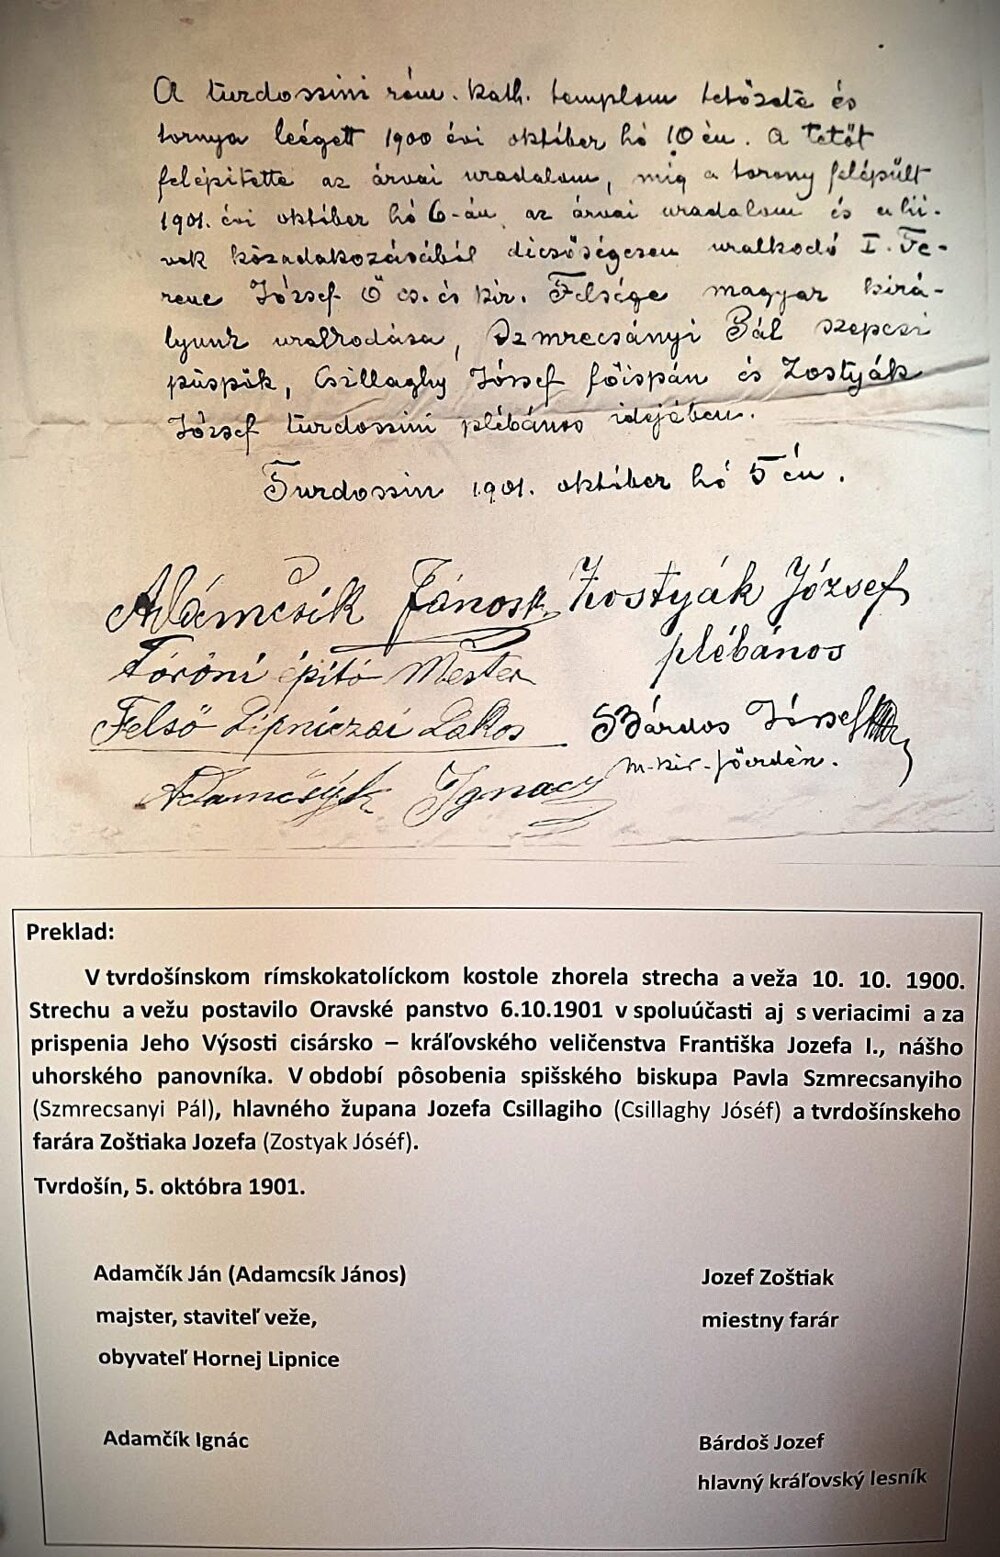 A turdossini róm. kath. templom tetőzete és
tornya leégett 1900 évi október hó 10 én. A tetőt
felépitette az árvai uradalom, mig a torony felépült
1901. évi október hó 6-án az árvai uradalom és a hi-
vek közadakozásából dicsőségesen uralkodó I. Fe-
renc József Ő cs. és kir. Felsége magyar kirá-
lyunk uralkodása, Szmrecsányi Pál szepesi
püspök, Csillaghy József főispán és Zostyák
József turdossini plébános idejében.
Turdossin 1901. október hó 5 én.
Adámcsik Jánosk Zostyák József
Toróni épitó Mester plébános
Felső Lipniczai Lakos Bárdos József
Adamčsýk Ignacz m. kir. főerdén.
Preklad:
V tvrdošínskom rímskokatolíckom kostole zhorela strecha a veža 10. 10. 1900.
Strechu a vežu postavilo Oravské panstvo 6.10.1901 v spoluúčasti aj s veriacimi a za
prispenia Jeho Výsosti cisársko – kráľovského veličenstva Františka Jozefa I., nášho
uhorského panovníka. V období pôsobenia spišského biskupa Pavla Szmrecsanyiho
(Szmrecsanyi Pál), hlavného župana Jozefa Csillagiho (Csillaghy Jóséf) a tvrdošínskeho
farára Zoštiaka Jozefa (Zostyak Jóséf).
Tvrdošín, 5. októbra 1901.
Adamčík Ján (Adamcsík János) Jozef Zoštiak
majster, staviteľ veže, miestny farár
obyvateľ Hornej Lipnice
Adamčík Ignác Bárdoš Jozef
hlavný kráľovský lesník